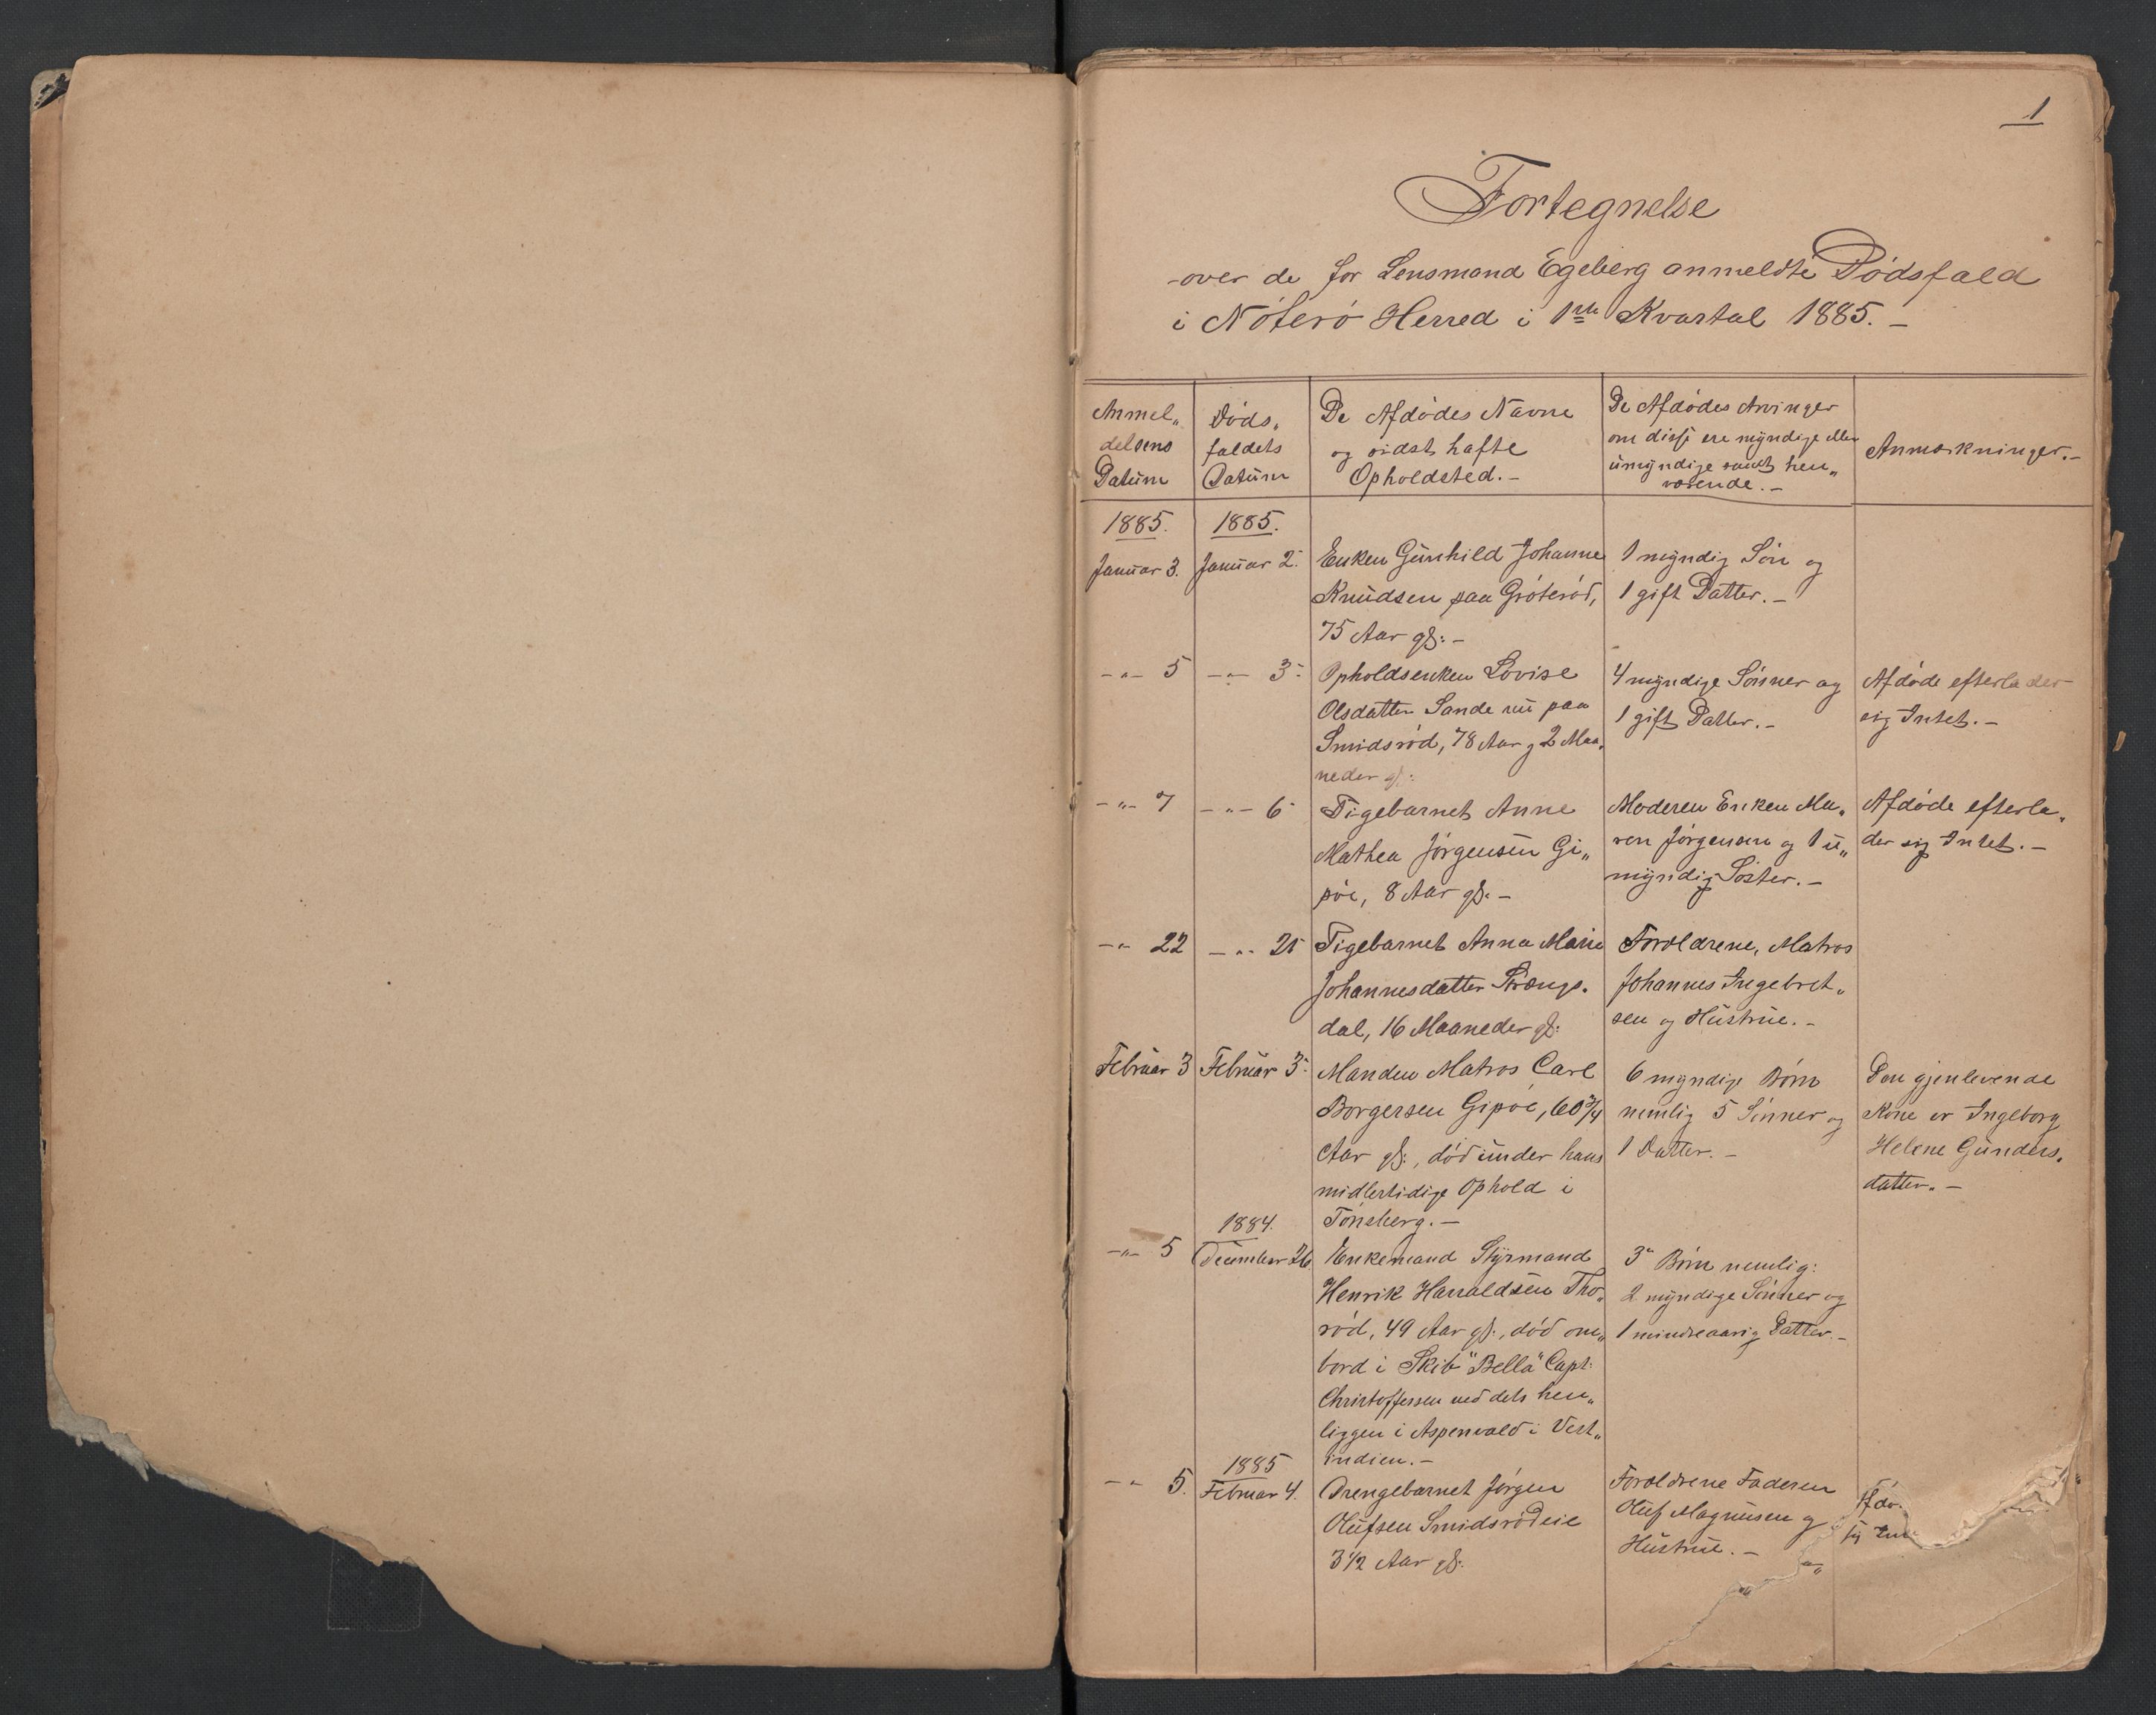 1
Fortegnelse
over de for Lensmand Egeberg anmeldte Dødsfald
i Nøterø Herred i 1ste Kvartal 1885.-
Anmel„
delsens
Datum
Døds„
faldets
Datum
De Afdødes Navne
og sidst hafte
Opholdsted.-
De Afdødes Arvinger
om disse ere myndige eller
umyndige samt hen„
værende.-
Anmærkninger.-
1885.
1885.
Januar 3.
Januar 2.
Enken Gunhild Johanne
Knudsen paa Grøterød,
75 Aar gl:-
1 myndig Søn og
1 gift Datter.-
-„- 5
-„- 3
Opholdsenken Lovise
Olsdatter Sande nu paa
Smidsrød, 78 Aar g 2 Maa„
neder gl:
4 myndige Sønner og
1 gift Datter.-
Afdøde efterlader
sig Intet.-
-„- 7
-„- 6
Pigebarnet Anne
Mathea Jørgensen Gi„
pøe, 8 Aar gl.-
Moderen Enken Ma„
ren Jørgensen og 1 u„
myndig Søster.-
Afdøde efterla„
der sig Intet.-
-„- 22
-„- 21
Pigebarnet Anna Marie
Johannesdatter Strængs„
dal, 16 Maaneder gl:
Forældrene, Matros
Johannes Ingebret„
sen og Hustrue.-
Februar 3
Februar 3
Manden Matros Carl
Borgersen Gipøe, 60 3/4
Aar gl:, død under hans
midlertidige Ophold i
Tønsberg.-
6 myndige Børn
nemlig 5 Sønner og
1 Datter.-
Den gjenlevende
Kone er Ingeborg
Helene Gunders„
datter.-
-„- 5
1884.
December 26
Enkemand Styrmand
Henrik Harraldsen Tho„
rød, 49 Aar gl:, død om„
bord i Skib "Bella" Capt:
Christoffersen ved dets hen„
liggen i Aspenvald i Vest„
indien.-
3 Børn nemlig:
2 myndige Sønner og
1 mindreaarig Datter.-
-„- 5.
1885
Februar 4.
Drengebarnet Jørgen
Olufsen Smidsrødeie
3 1/2 Aar gl:
Forældrene Faderen
Oluf Magnusen og
Hustrue.-
Afdø
sig